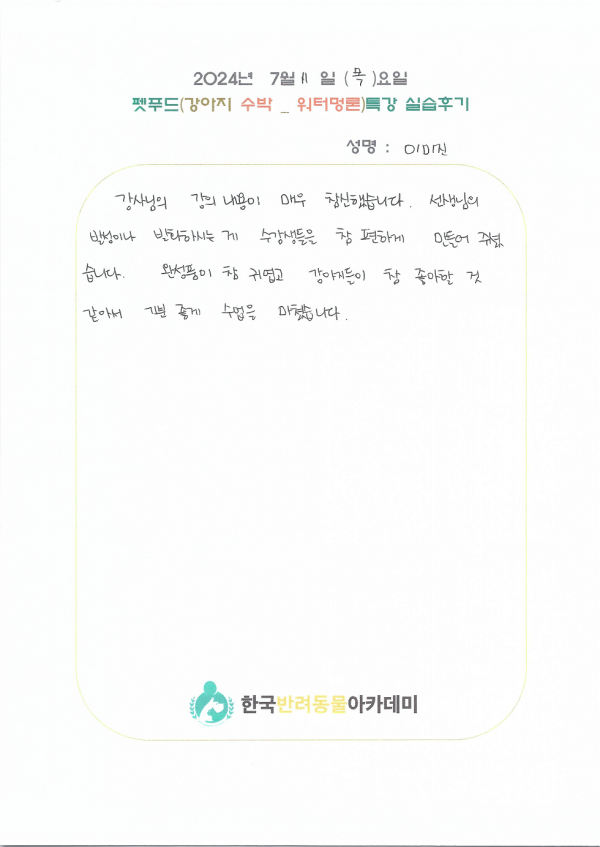 2024년 7월 11 일 (목)요일
펫푸드(강아지 수박 _ 워터멍론)특강 실습후기
성명 : 이미진
강사님의 강의 내용이 매우 참신했습니다. 선생님의
발성이나 말하시는 게 수강생들을 참 편하게 만들어 주셨
습니다. 완성품이 참 귀엽고 강아지들이 참 좋아할 것
같아서 기분 좋게 수업을 마쳤습니다.
한국반려동물아카데미